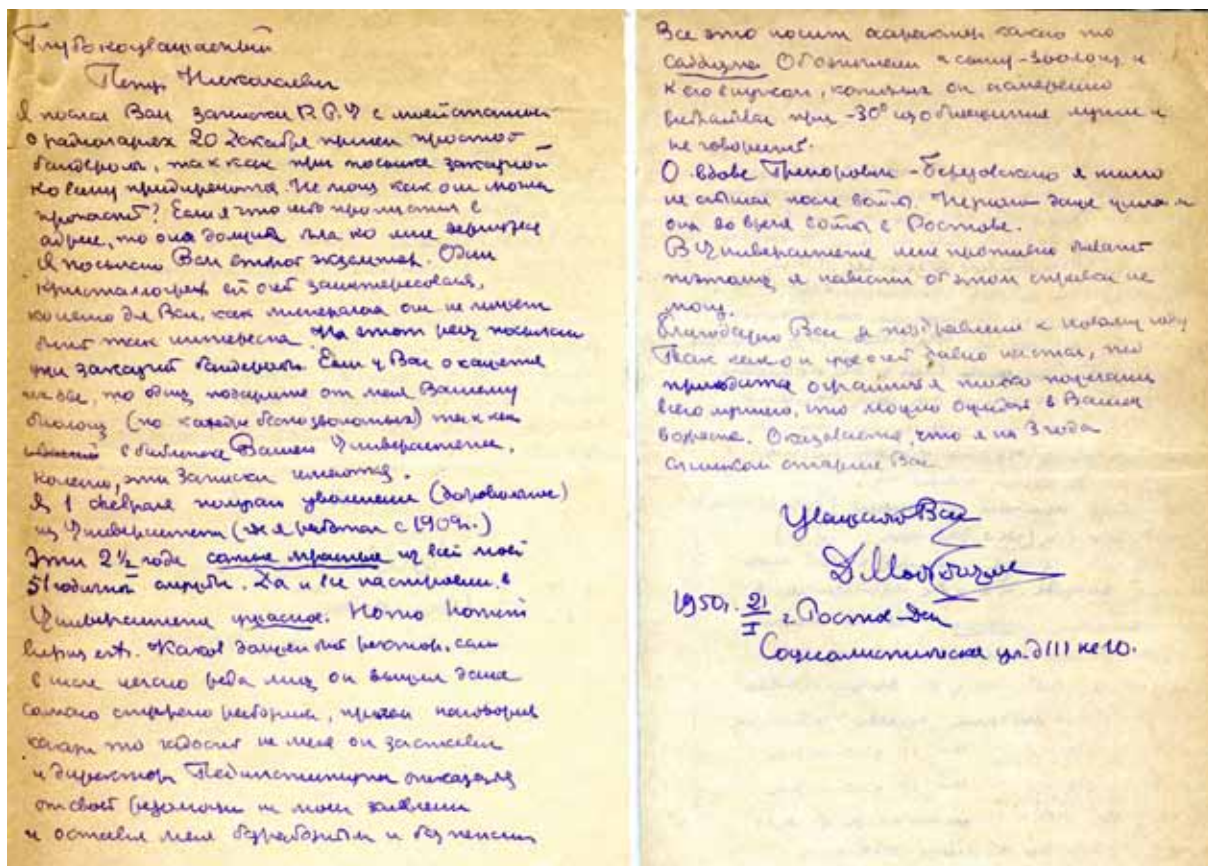 Глубокоуважаемый
Петр Николаевич
Я послал Вам записки Р.Г.У с моей статьей
о радиоляриях 20 декабря прошл простой
бандеролью, так как при посылке заказной
ко всему придираются. Не могла как она могла
пропасть? Если я что либо пропустил в
адресе, то она должна была ко мне вернуться
Я посылаю Вам второй экземпляр. Один
кристаллограф ей очень заинтересовался,
конечно для Вас, как минералога она не может
быть так интересна. На этот раз посылаю
уже заказной бандеролью. Если у Вас окажется
их две, то одну подарите от меня Вашему
биологу (по кафедре беспозвоночных) так как
в библиотеке Вашего Университета,
конечно, эти Записки имеются.
Я 1 февраля получаю увольнение (добровольное)
из Университета (где я работал с 1909 г.)
Эти 2½ года самые мрачные из всей моей
51 годичной службы. Да и все настроение в
Университете ужасное. Homo homini
lupus est. Какой должен быть ректор, сам
в числе целого ряда лиц он выгнал даже
самого старого работника, причем наговорив
какую то на меня он заставил
и директора Пединститута отказаться
от своей резолюции на моем заявлении
и оставил меня безработным и без пенсии
Все это носит характер какого то
садизма. Относительно к сану-зоологу и
к его внукам, которых он намеренно
выбрасывал при -30° из общежития лучше и
не говорить.
О вдове Григорович-Березовского я ничего
не слышал после войны. Кажется даже умерла
она во время войны в Ростове.
В Университете мне противно бывать
поэтому я навести об этом справок не
могу.
Благодарю Вас за поздравление к новому году
Так как он уже очень давно настал, то
приходится ограничиться только пожеланием
всего лучшего, что можно ожидать в Вашем
возрасте. Оказывается, что я на 3 года
слишком старше Вас
Уважающий Вас
1950 г. 21/I г. Ростов-Дон
Социалистическая ул. д 111 кв 10.